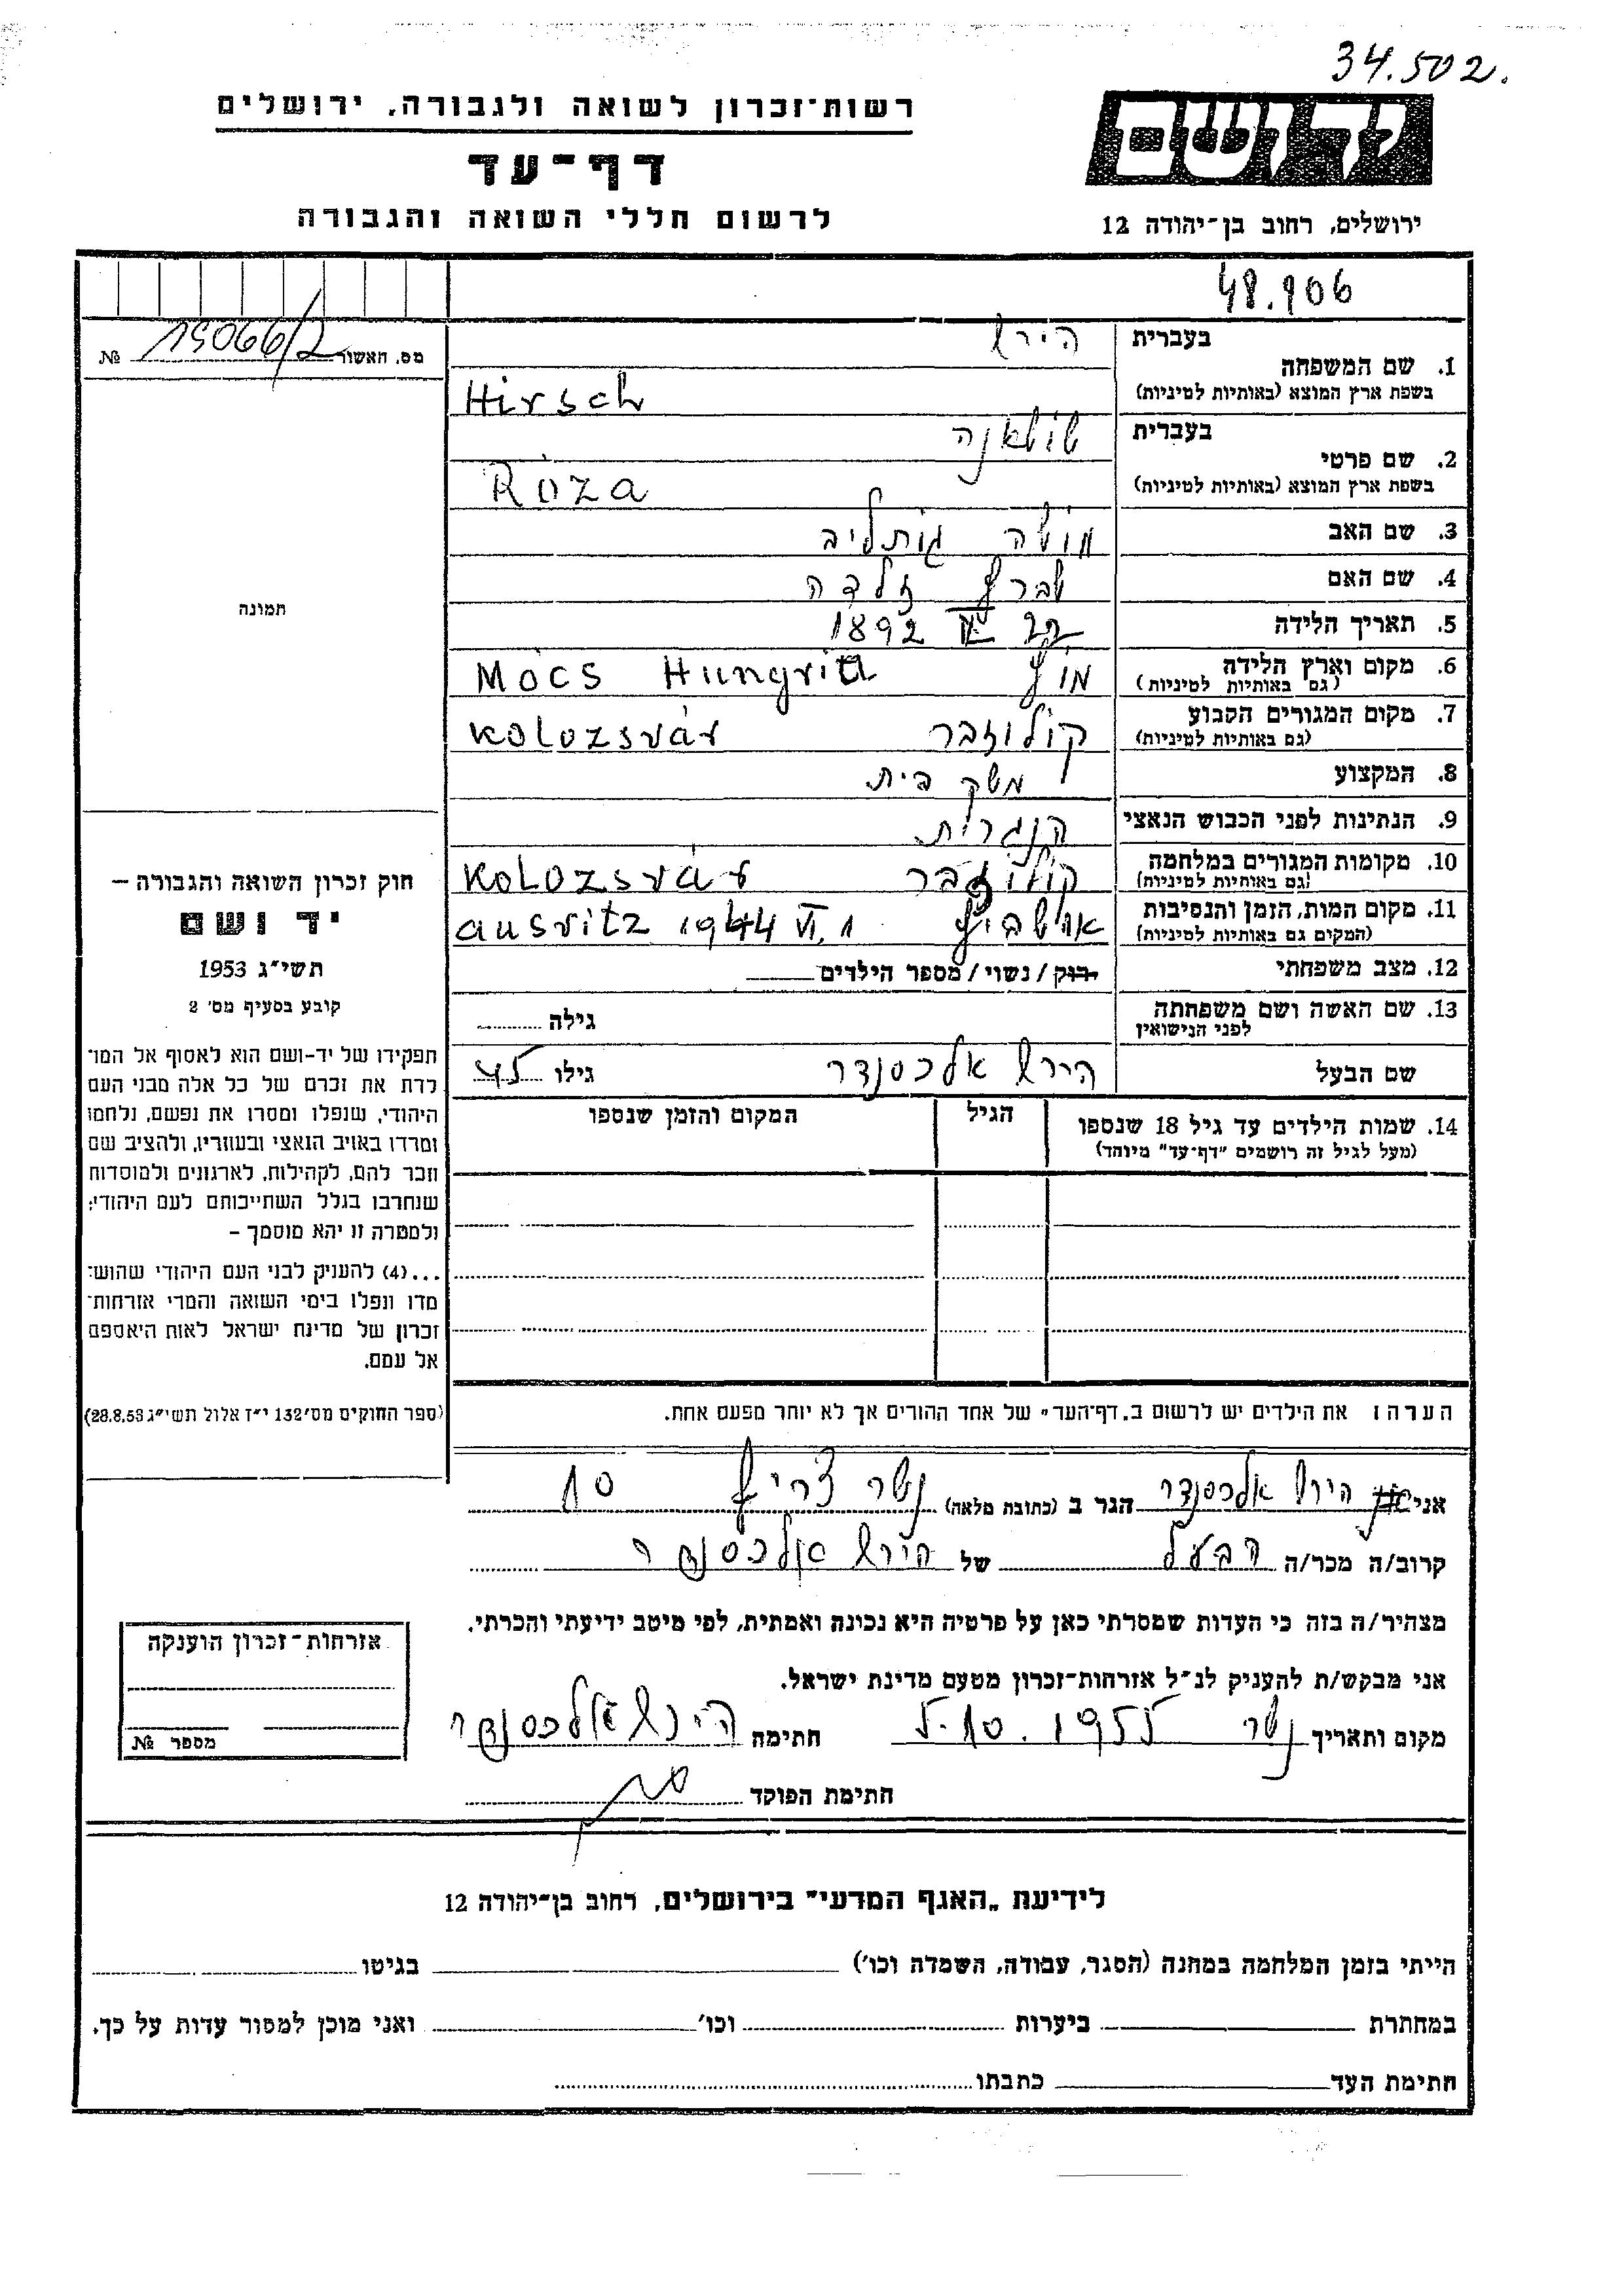 34.502.
רשות־זכרון לשואה ולגבורה, ירושלים
יד ושם
דף־עד
לרשום חללי השואה והגבורה
ירושלים, רחוב בן־יהודה 12
48.906
מס. האשור 15066/2 №
בעברית הירש
1. שם המשפחה
בשפת ארץ המוצא (באותיות לטיניות) Hirsch
בעברית שושאנה
2. שם פרטי
בשפת ארץ המוצא (באותיות לטיניות) Róza
3. שם האב מושה גותליב
4. שם האם שברץ זלדה
5. תאריך הלידה 22 1892
6. מקום וארץ הלידה מוץ Mócs Hungria
(גם באותיות לטיניות)
7. מקום המגורים הקבוע קולוזבר Kolozsvár
(גם באותיות לטיניות)
8. המקצוע משק בית
9. הנתינות לפני הכבוש הנאצי הנגרית
10. מקומות המגורים במלחמה קולוזבר Kolozsvár
(גם באותיות לטיניות)
11. מקום המות, הזמן והנסיבות אושביץ ausvitz 1944 VI. 1
(המקום גם באותיות לטיניות)
12. מצב משפחתי רוק / נשוי / מספר הילדים
13. שם האשה ושם משפחתה גילה
לפני הנישואין
שם הבעל הירש אלכסנדר גילו 45
14. שמות הילדים עד גיל 18 שנספו הגיל המקום והזמן שנספו
(מעל לגיל זה רושמים "דף־עד" מיוחד)
הערה: את הילדים יש לרשום ב„דף־העד" של אחד ההורים אך לא יותר מפעם אחת.
תמונה
חוק זכרון השואה והגבורה –
יד ושם
תשי"ג 1953
קובע בסעיף מס' 2
תפקידו של יד-ושם הוא לאסוף אל המו־
לדת את זכרם של כל אלה מבני העם
היהודי, שנפלו ומסרו את נפשם, נלחמו
ומרדו באויב הנאצי ובעוזריו, ולהציב שם
וזכר להם, לקהילות, לארגונים ולמוסדות
שנחרבו בגלל השתייכותם לעם היהודי;
ולמטרה זו יהא מוסמך –
...(4) להעניק לבני העם היהודי שהוש־
מדו ונפלו בימי השואה והמרי אזרחות־
זכרון של מדינת ישראל לאות היאספם
אל עמם.
(ספר החוקים מס' 132 י"ז אלול תשי"ג 28.8.53)
אני הירש אלכסנדר הגר ב (כתובת מלאה) נשר צריף 10
קרוב/ה מכר/ה הבעל של הירש אלכסנדר
מצהיר/ה בזה כי העדות שמסרתי כאן על פרטיה היא נכונה ואמתית, לפי מיטב ידיעתי והכרתי.
אני מבקש/ת להעניק לנ"ל אזרחות־זכרון מטעם מדינת ישראל.
מקום ותאריך נשר 5.10.1955 חתימה הירש אלכסנדר
חתימת הפוקד
אזרחות־זכרון הוענקה
מספר №
לידיעת „האגף המדעי" בירושלים, רחוב בן־יהודה 12
הייתי בזמן המלחמה במחנה (הסגר, עבודה, השמדה וכו') בגיטו
במחתרת ביערות וכו' ואני מוכן למסור עדות על כך.
חתימת העד כתבתו